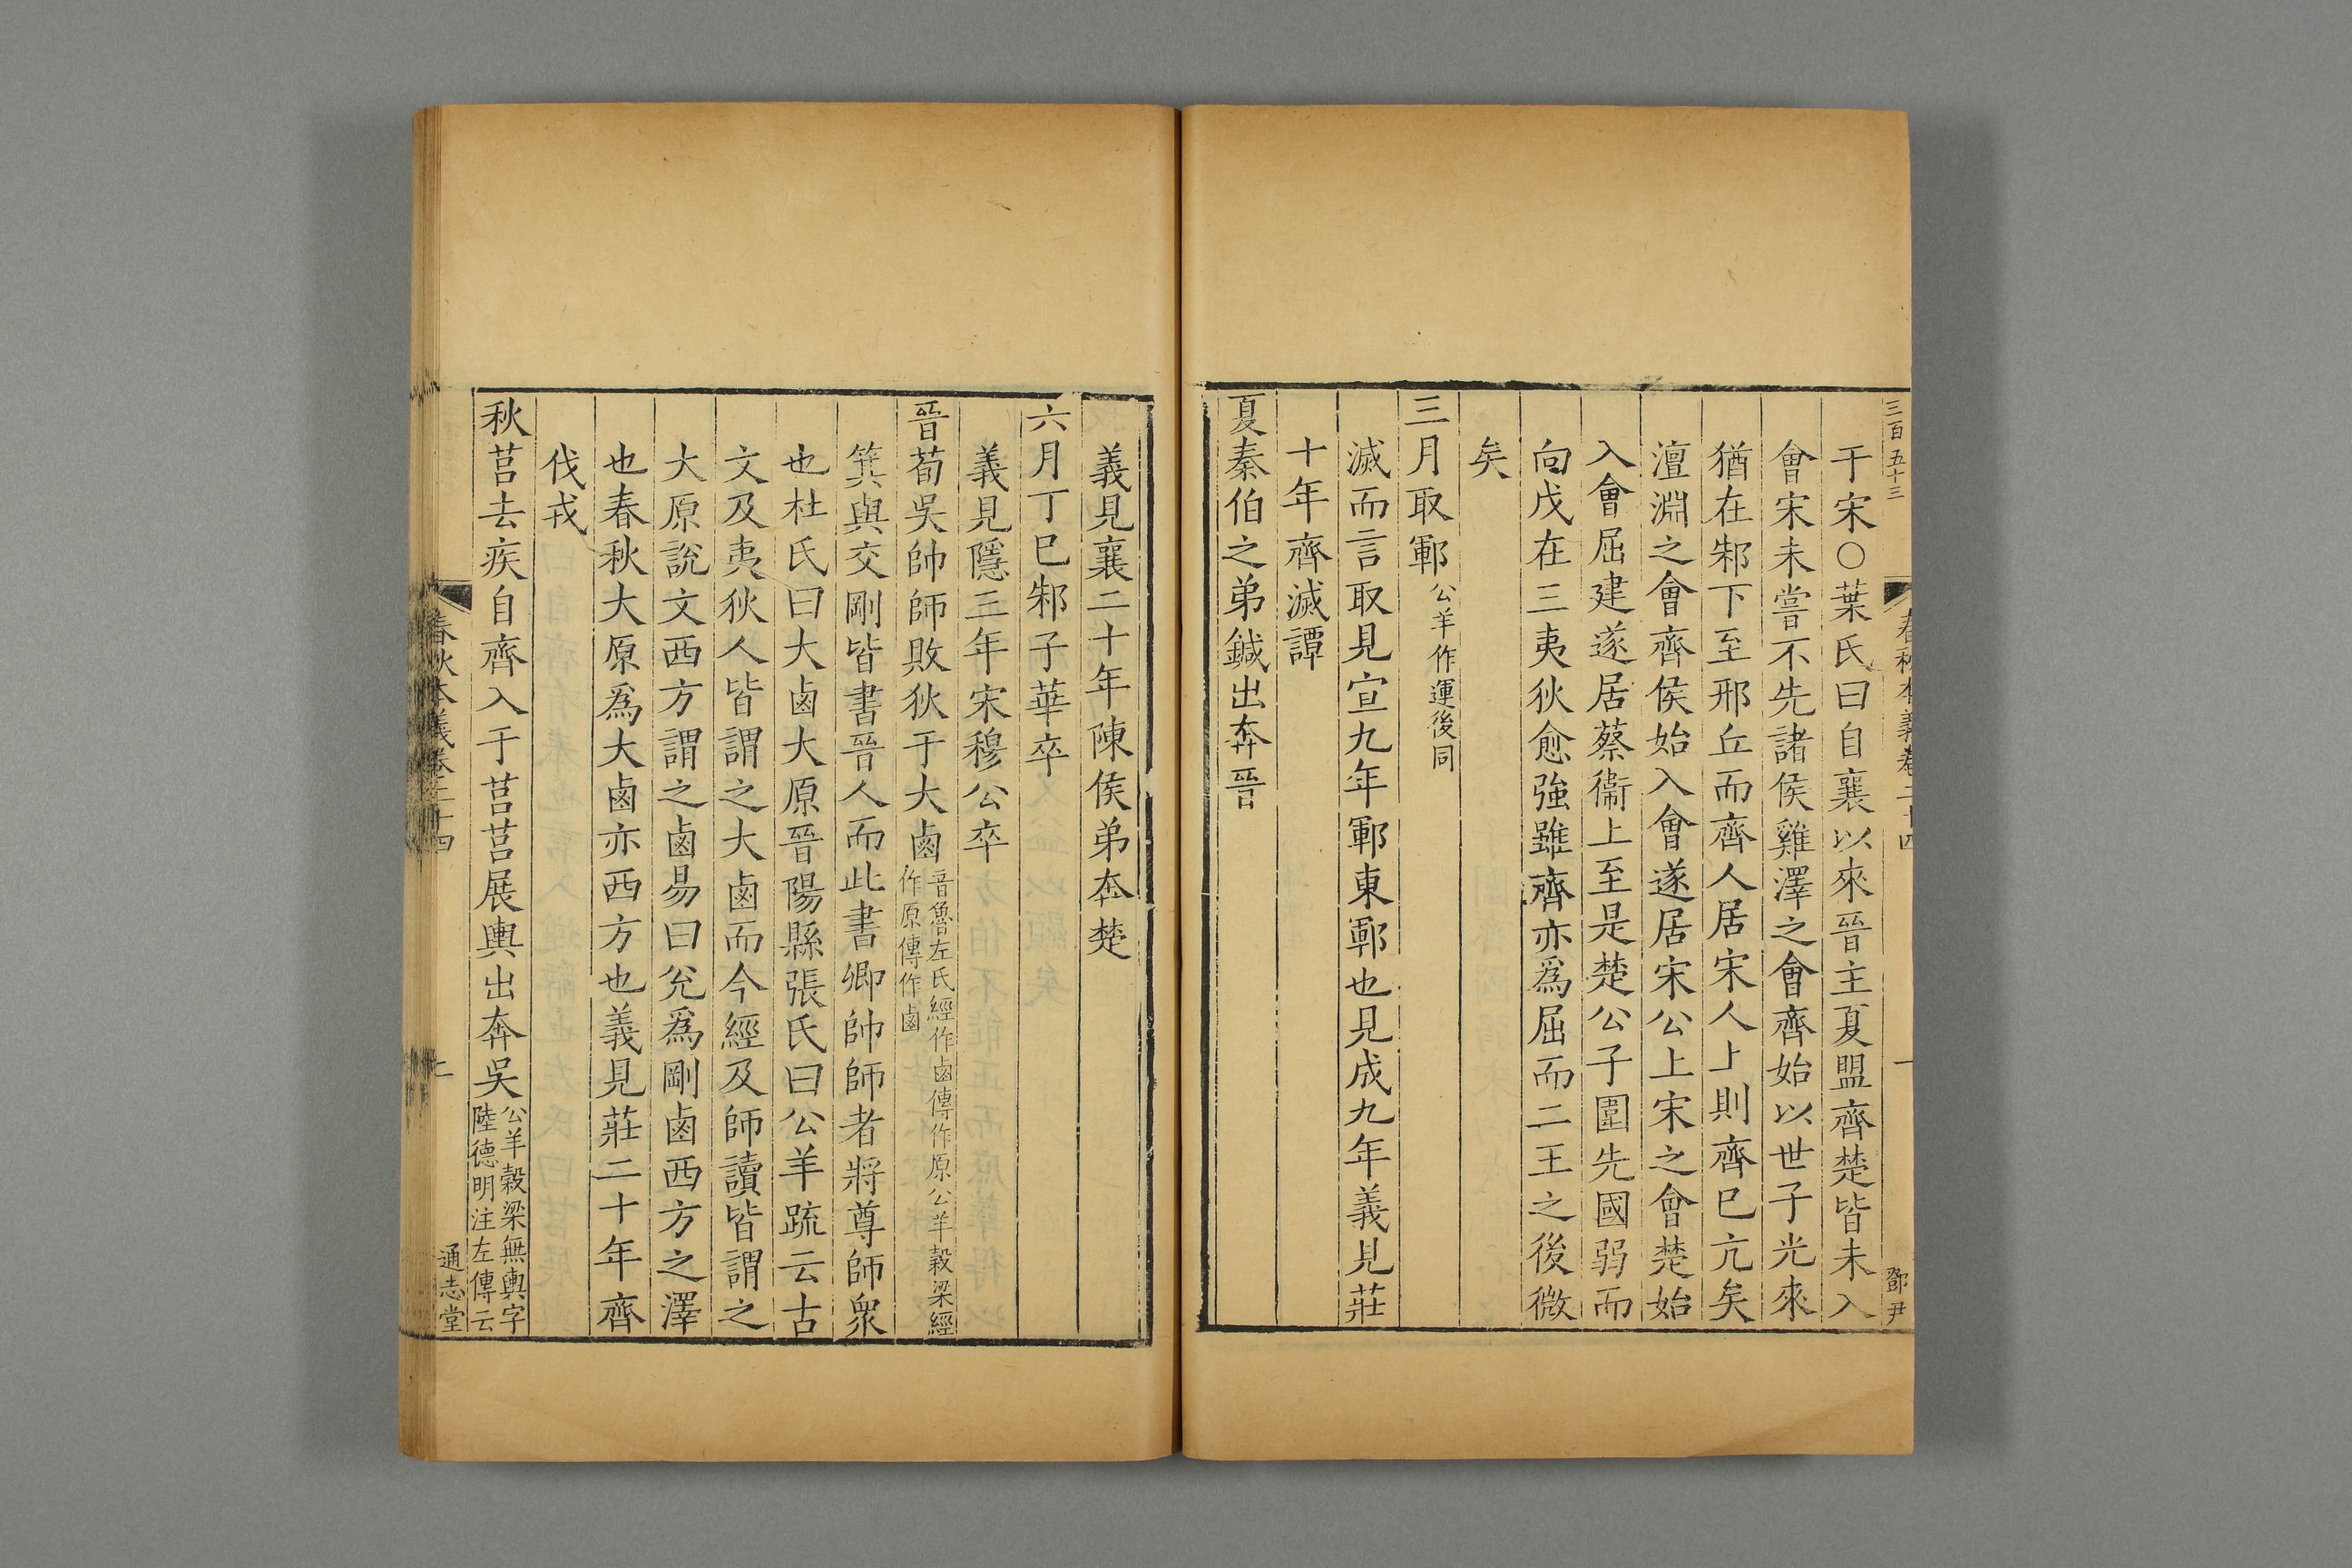 三百五十三
春秋本義卷二十四
一
鄧尹
于宋○葉氏曰自襄以來晉主夏盟齊楚皆未入
會宋未嘗不先諸侯雞澤之會齊始以世子光來
猶在邾下至邢丘而齊人居宋人上則齊巳亢矣
澶淵之會齊侯始入會遂居宋公上宋之會楚始
入會屈建遂居蔡衞上至是楚公子圍先國弱而
向戌在三夷狄愈強雖齊亦爲屈而二王之後微
矣
三月取鄆公羊作運後同
滅而言取見宣九年鄆東鄆也見成九年義見莊
十年齊滅譚
夏秦伯之弟鍼出奔晉
義見襄二十年陳侯弟奔楚
六月丁巳邾子華卒
義見隱三年宋穆公卒
晉荀吳帥師敗狄于大鹵音魯左氏經作鹵傳作原公羊穀梁經
作原傳作鹵
箕與交剛皆書晉人而此書卿帥師者將尊師衆
也杜氏曰大鹵大原晉陽縣張氏曰公羊疏云古
文及夷狄人皆謂之大鹵而今經及師讀皆謂之
大原說文西方謂之鹵易曰兊爲剛鹵西方之澤
也春秋大原爲大鹵亦西方也義見莊二十年齊
伐戎
秋莒去疾自齊入于莒莒展輿出奔吳公羊穀梁無輿字
陸德明注左傳云
春秋本義卷二十四
通志堂